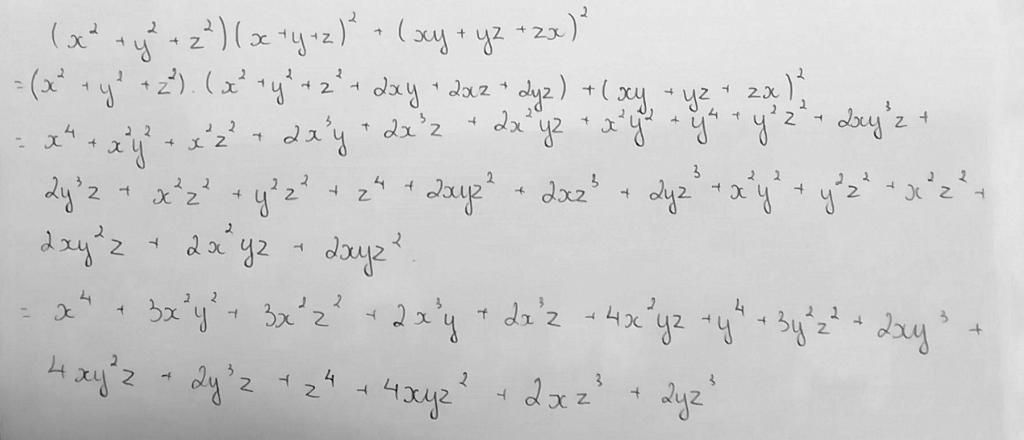 (x² + y² + z²)(x + y + z)² + (xy + yz + zx)²
= (x² + y² + z²) . (x² + y² + z² + 2xy + 2xz + 2yz) + (xy + yz + zx)²
= x⁴ + x²y² + x²z² + 2x³y + 2x³z + 2x²yz + x²y² + y⁴ + y²z² + 2xy³z +
2y³z + x²z² + y²z² + z⁴ + 2xyz² + 2xz³ + 2yz³ + x²y² + y²z² + x²z² +
2xy²z + 2x²yz + 2xyz².
= x⁴ + 3x²y² + 3x²z² + 2x³y + 2x³z + 4x²yz + y⁴ + 3y²z² + 2xy³ +
4xy²z + 2y³z + z⁴ + 4xyz² + 2xz³ + 2yz³